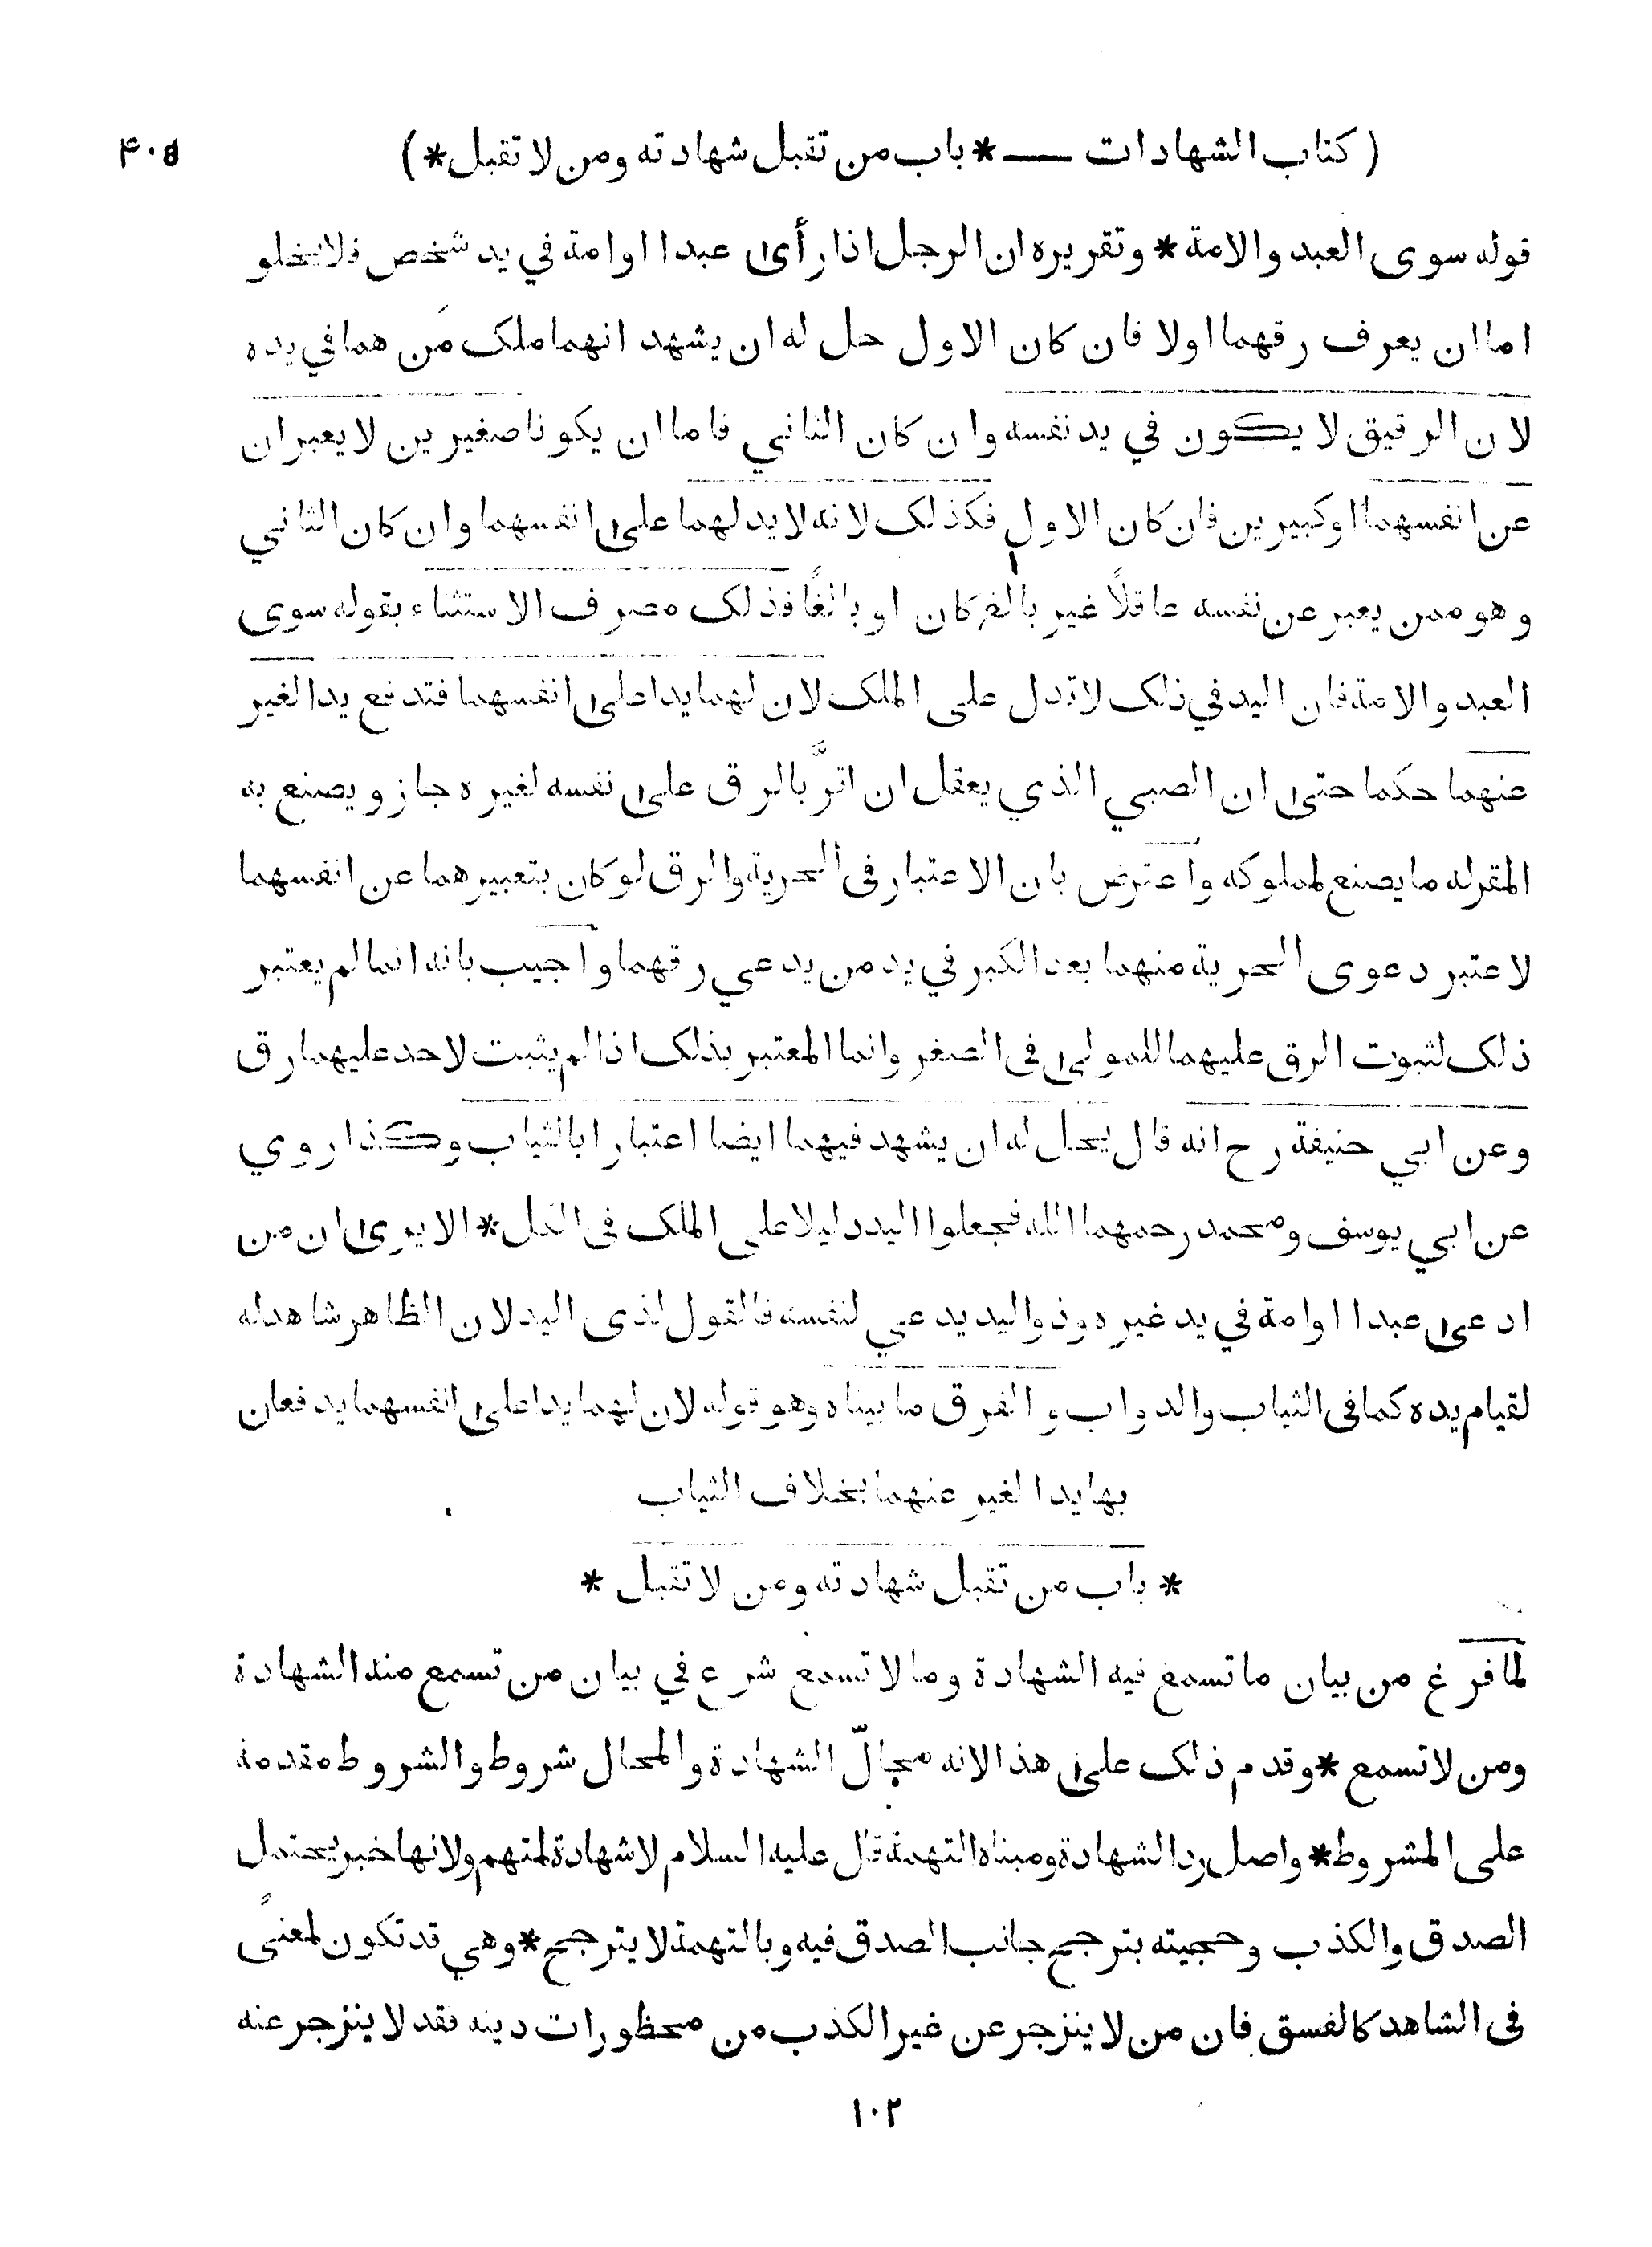 ( كتاب الشهادات —— * باب من تقبل شهادته ومن لا تقبل * ) ۴۰۵
قوله سوى العبد والامة * وتقريره ان الرجل اذا رأى عبدا او امة في يد شخص فلا يخلو
اما ان يعرف رقهما اولا فان كان الاول حل له ان يشهد انهما ملك مَن هما في يده
لان الرقيق لا يكون في يد نفسه وان كان الثاني فاما ان يكونا صغيرين لا يعبران
عن انفسهما او كبيرين فان كان الاول فكذلك لانه لا يد لهما على انفسهما وان كان الثاني
وهو ممن يعبر عن نفسه عاقلاً غير بالغ كان او بالغًا فذلك مصرف الاستثناء بقوله سوى
العبد والامة فان اليد في ذلك لا تدل على الملك لان لهما يدا على انفسهما فتدفع يد الغير
عنهما حكما حتى ان الصبي الذي يعقل ان اقرَّ بالرق على نفسه لغيره جاز ويصنع به
المقر له ما يصنع لمملوكه واعترض بان الاعتبار في الحرية والرق لو كان بتعبيرهما عن انفسهما
لاعتبر دعوى الحرية منهما بعد الكبر في يد من يدعي رقهما واجيب بانه انما لم يعتبر
ذلك لثبوت الرق عليهما للمولى في الصغر وانما المعتبر بذلك اذا لم يثبت لاحد عليهما رق
وعن ابي حنيفة رح انه قال يحل له ان يشهد فيهما ايضا اعتبارا بالثياب وكذا روي
عن ابي يوسف ومحمد رحمهما الله فجعلوا اليد دليلا على الملك في الكل * الا يرى ان من
ادعى عبدا او امة في يد غيره وذو اليد يدعي لنفسه فالقول لذى اليد لان الظاهر شاهد له
لقيام يده كما في الثياب والدواب والفرق ما بيناه وهو قوله لان لهما يدا على انفسهما يدفعان
بها يد الغير عنهما بخلاف الثياب
* باب من تقبل شهادته ومن لا تقبل *
لما فرغ من بيان ما تسمع فيه الشهادة وما لا تسمع شرع في بيان من تسمع منه الشهادة
ومن لا تسمع * وقدم ذلك على هذا لانه محالّ الشهادة والمحال شروط والشروط مقدمة
على المشروط * واصل رد الشهادة ومبناه التهمة قال عليه السلام لا شهادة لمتهم ولانها خبر يحتمل
الصدق والكذب وحجيته بترجح جانب الصدق فيه وبالتهمة لا يترجح * وهي قد تكون لمعنًى
في الشاهد كالفسق فان من لا ينزجر عن غير الكذب من محظورات دينه فقد لا ينزجر عنه
١٠٢